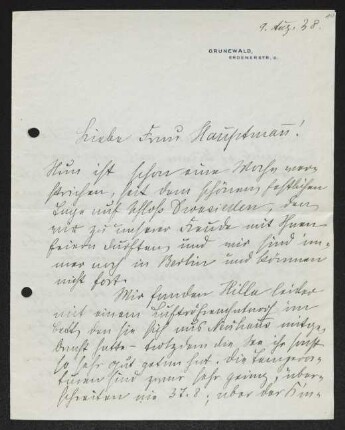 9. Aug. 28.
GRUNEWALD,
Liebe Frau Hauptmann!
Nun ist schon eine Woche ver-
strichen, seit dem schönen, festlichen
Tage auf Schloss Dwasieden, den
wir zu unserer Freude mit Ihnen
feiern durften, und wir sind im-
mer noch in Berlin und können
nicht fort.
Wir fanden Hilla leider
mit einem Luftröhrenkatarrh im
Bett, den sie sich aus Neuhaus mitge-
bracht hatte – trotzdem die See ihr sonst
so sehr gut getan hat. Die Tempera-
turen sind zwar sehr gering, über-
schreiten nie 37.8; aber der Kin-